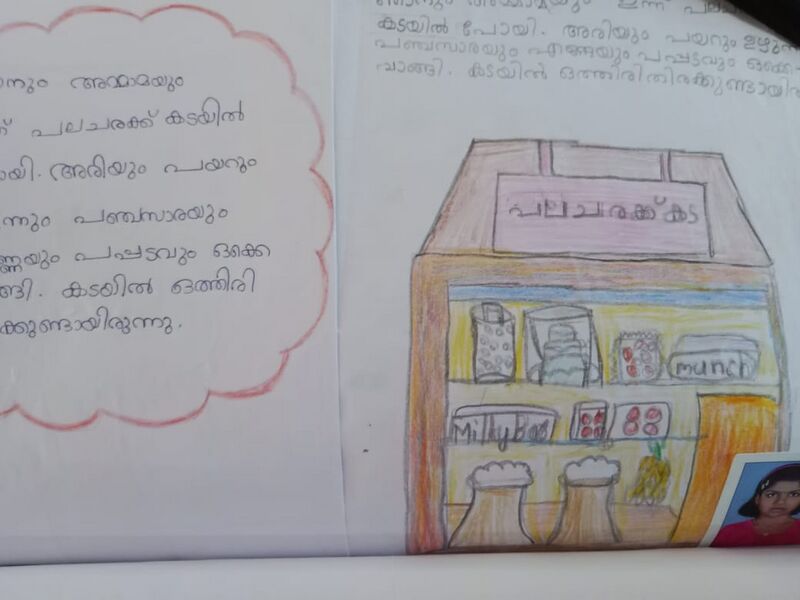 നും അമ്മാമയും
പലചരക്ക് കടയിൽ
യി. അരിയും പയറും
ന്നും പഞ്ചസാരയും
ണ്ണയും പപ്പടവും ഒക്കെ
ങ്ങി. കടയിൽ ഒത്തിരി
ക്കുണ്ടായിരുന്നു.
ഞാനും അമ്മാമയും ഇന്ന് പലച
കടയിൽ പോയി. അരിയും പയറും ഉഴുന്ന
പഞ്ചസാരയും എണ്ണയും പപ്പടവും ഒക്കെ
വാങ്ങി. കടയിൽ ഒത്തിരി തിരക്കുണ്ടായിരു
പലചരക്ക് കട
munch
Milkybar